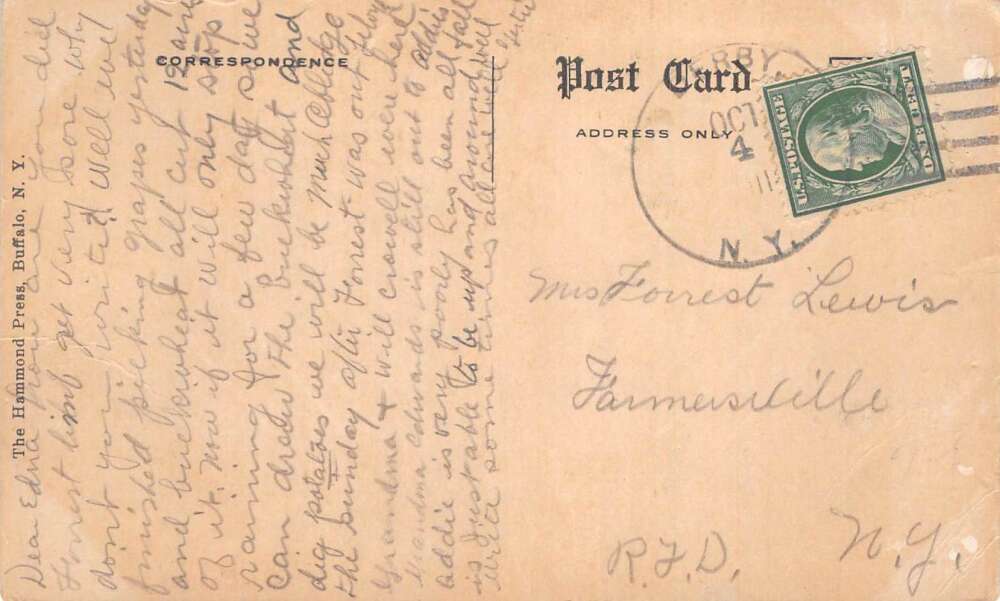 CORRESPONDENCE
Dear Edna how are you did
Forrest limp get very sore why
don't you write. Well we
finished picking grapes yesterday
and buckwheat all cut 12 acres
of it. now if it will only stop
raining for a few days so we
can draw the buckwheat and
dig potatoes we will be much obliged
the sunday after Forrest was out Floyd
Grandma + will crowell were here
Grandma edwards is still out to addis
addie is very poorly has been all fall
is just able to be up and around well
write some times all are well
The Hammond Press, Buffalo, N. Y.
Post Card
ADDRESS ONLY
DERBY
OCT
4
N. Y.
U.S. POSTAGE
ONE CENT
Mrs Forrest Lewis
Farmersville
R.F.D. N.Y.